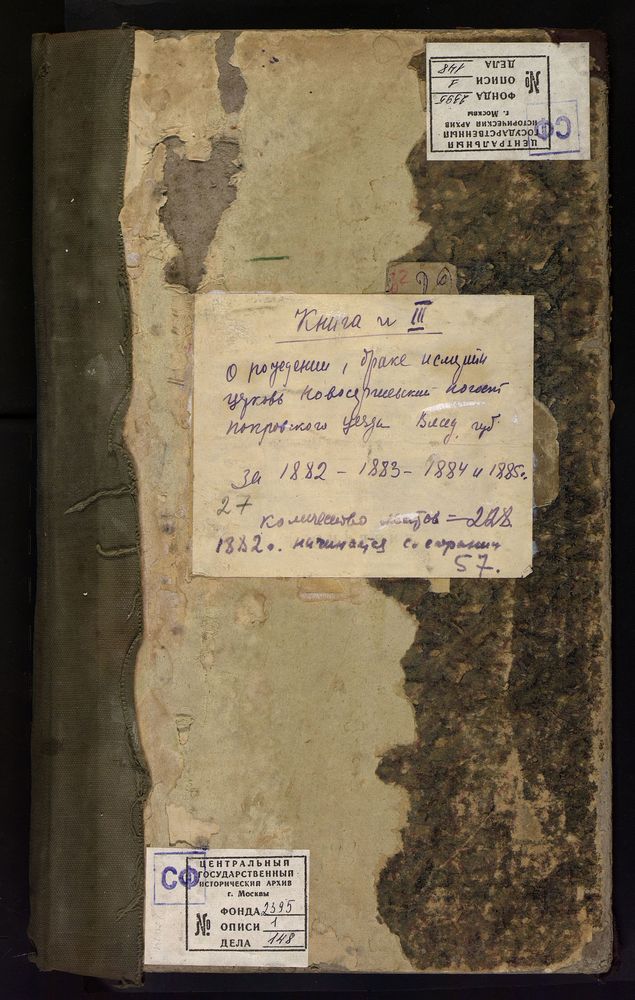 ЦЕНТРАЛЬНЫЙ
ГОСУДАРСТВЕННЫЙ
ИСТОРИЧЕСКИЙ АРХИВ
г. Москвы
№ ФОНДА 2395
ОПИСИ 1
ДЕЛА 148
СФ
Книга № III
О рождении, браке и смерти
церковь Новосергиевский погост
Покровского уезда Влад. губ.
За 1882 - 1883 - 1884 и 1885г.
27
количество листов = 228
1882г. начинается со страницы
57.
СФ
ЦЕНТРАЛЬНЫЙ
ГОСУДАРСТВЕННЫЙ
ИСТОРИЧЕСКИЙ АРХИВ
г. Москвы
№ ФОНДА 2395
ОПИСИ 1
ДЕЛА 148